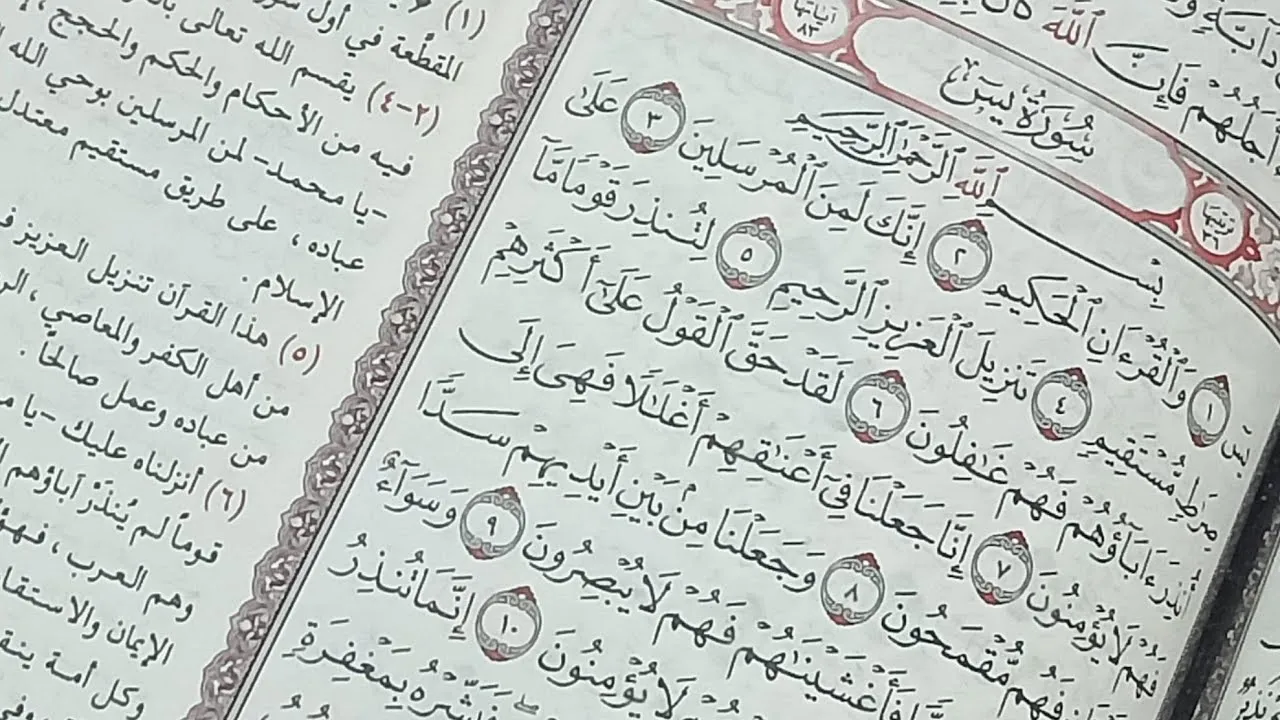 دَآبَّةٍ
أَجَلُهُمْ فَإِنَّ ٱللَّهَ
آياتها ٨٣
سُورَةُ يسٓ
بِسْمِ ٱللَّهِ ٱلرَّحْمَٰنِ ٱلرَّحِيمِ
يسٓ ١ وَٱلْقُرْءَانِ ٱلْحَكِيمِ ٢ إِنَّكَ لَمِنَ ٱلْمُرْسَلِينَ ٣ عَلَىٰ
صِرَٰطٍ مُّسْتَقِيمٍ ٤ تَنزِيلَ ٱلْعَزِيزِ ٱلرَّحِيمِ ٥ لِتُنذِرَ قَوْمًا مَّآ
أُنذِرَ ءَابَآؤُهُمْ فَهُمْ غَٰفِلُونَ ٦ لَقَدْ حَقَّ ٱلْقَوْلُ عَلَىٰٓ أَكْثَرِهِمْ
فَهُمْ لَا يُؤْمِنُونَ ٧ إِنَّا جَعَلْنَا فِىٓ أَعْنَٰقِهِمْ أَغْلَٰلًا فَهِىَ إِلَى
فَهُم مُّقْمَحُونَ ٨ وَجَعَلْنَا مِنۢ بَيْنِ أَيْدِيهِمْ سَدًّا
فَأَغْشَيْنَٰهُمْ فَهُمْ لَا يُبْصِرُونَ ٩ وَسَوَآءٌ
لَا يُؤْمِنُونَ ١٠ إِنَّمَا تُنذِرُ
فَبَشِّرْهُ بِمَغْفِرَةٍ
(١)
المقطّعة في أول
(٢-٤) يقسم الله تعالى
فيه من الأحكام والحكم والحجج
-يا محمد- لمن المرسلين بوحي الله
عباده، على طريق مستقيم معتدل
الإسلام.
(٥) هذا القرآن تنزيل العزيز
من أهل الكفر والمعاصي،
من عباده وعمل صالحًا.
(٦) أنزلناه عليك -يا
قومًا لم يُنذَرْ آباؤهم
وهم العرب،
الإيمان
وكل أمة